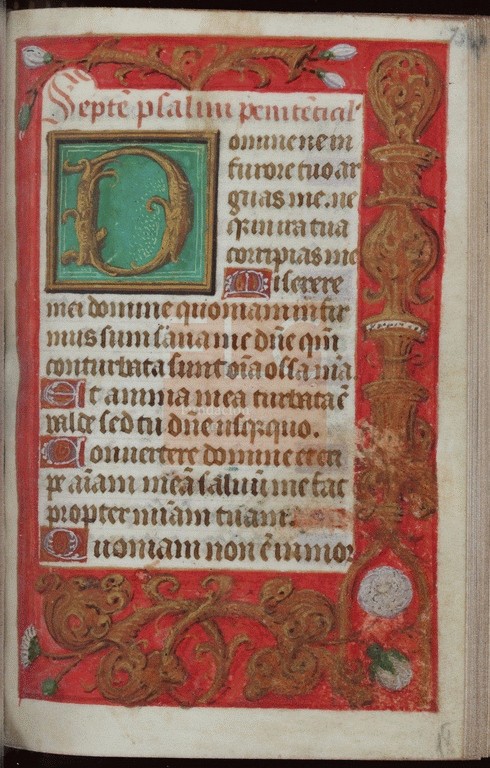 Septē psalmi penitēcial'
Domine ne in
furore tuo ar
guas me. ne
q; in ira tua
corripias me
Miserere
mei domine quoniam infir
mus sum sana me dn̄e qm̄
conturbata sunt oīa ossa mea.
Et anima mea turbata ē
valde sed tu dn̄e usq;quo.
Convertere domine et eri
pe aīam meā salvū me fac
propter mīam tuam.
Quoniam non ē in mor
Fundación